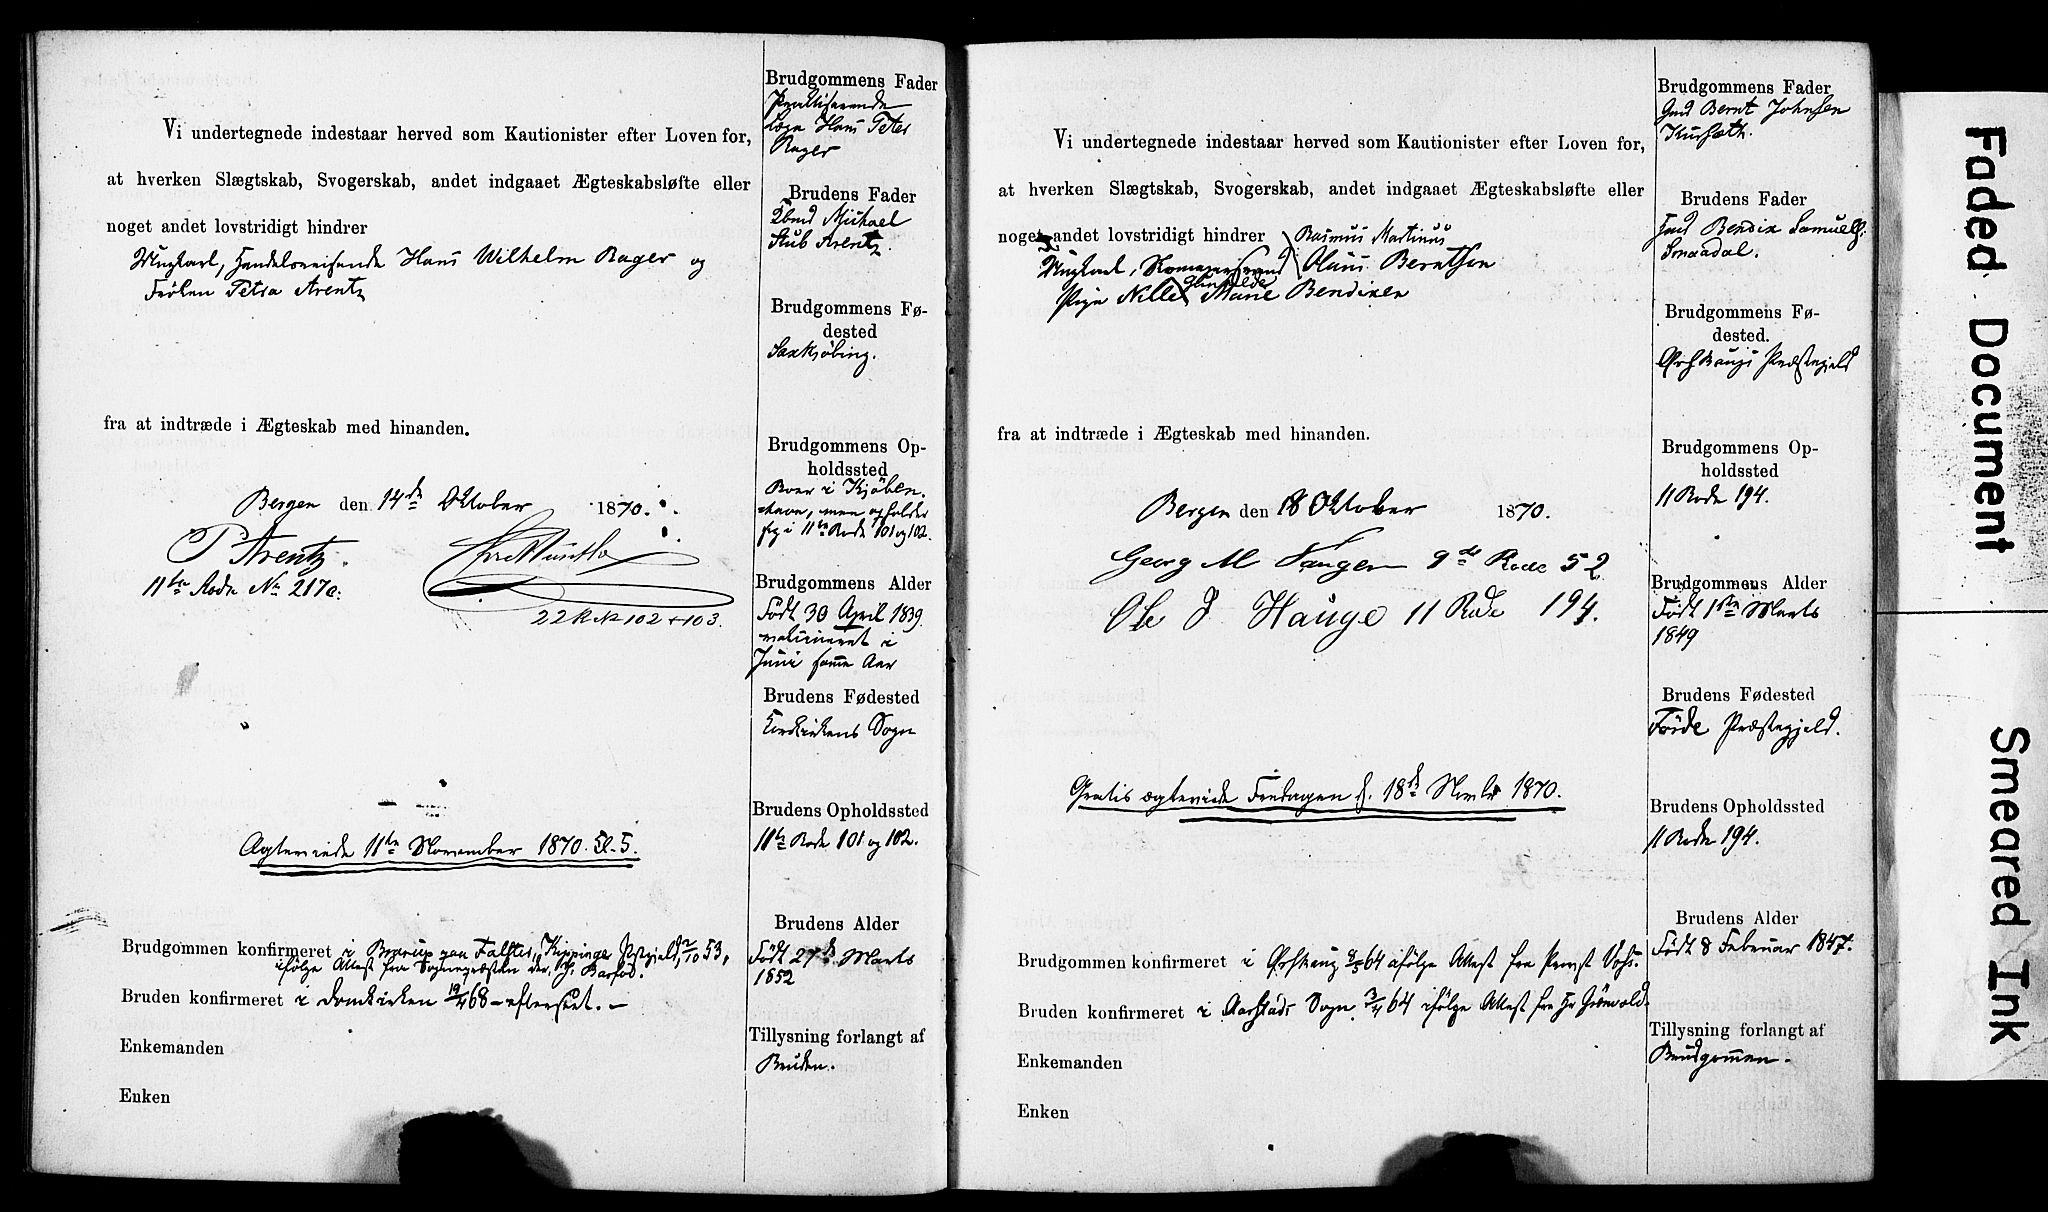 Vi undertegnede indestaar herved som Kautionister efter Loven for,
at hverken Slægtskab, Svogerskab, andet indgaaet Ægteskabsløfte eller
noget andet lovstridigt hindrer
Ungkarl, Handelsreisende Hans Wilhelm Rager og
Frøken Petra Arentz
fra at indtræde i Ægteskab med hinanden.
Bergen den 14de Oktober 1870.
P Arentz.
11te Rode No 217a.
22 R No 102 + 103.
Ægteviede 11te November 1870. Kl. 5.
Brudgommen konfirmeret i Brarup paa Falster, Kippinge Pstgjeld, 2/10 53,
ifølge Attest fra Sognepræsten der, Hr. Barfod.
Bruden konfirmeret i Domkirken 19/4 68 – efterseet. –
Enkemanden
Enken
Brudgommens Fader
Praktiserende
Læge Hans Peter
Rager
Brudens Fader
Kbmd Michael
Stub Arentz.
Brudgommens Fø-
dested
Saxkjøbing.
Brudgommens Op-
holdssted
Boer i Kjøben-
havn, men opholder
sig i 11te Rode 101 og 102.
Brudgommens Alder
Født 30 April 1839.
vaksineret i
Juni samme Aar
Brudens Fødested
Korskirkens Sogn
Brudens Opholdssted
11te Rode 101 og 102.
Brudens Alder
Født 27de Marts
1852
Tillysning forlangt af
Bruden.
Vi undertegnede indestaar herved som Kautionister efter Loven for,
at hverken Slægtskab, Svogerskab, andet indgaaet Ægteskabsløfte eller
noget andet lovstridigt hindrer Rasmus Martinus
Ungkarl, Olaus Berntsen
Pige Nille Marie Bendixen
fra at indtræde i Ægteskab med hinanden.
Bergen den 18 Oktober 1870.
Georg M 9de Rode 52
Ole J Hauge 11 Rode 194.
Gratis ægteviede Fredagen d. 18de Novbr 1870.
Brudgommen konfirmeret i Ørskoug 8/5 64 ifølge Attest fra Provst
Bruden konfirmeret i Sogn 3/4 64 ifølge Attest fra Hr Grönvold
Enkemanden
Enken
Brudgommens Fader
Gmd Bernt Johnsen
Brudens Fader
Gmd Bendix Samuels.
Smaadal.
Brudgommens Fø-
dested.
Ørskougs Præstegjeld
Brudgommens Op-
holdssted
11 Rode 194.
Brudgommens Alder
Født 1ste Marts
1849
Brudens Fødested
Førde Præstegjeld.
Brudens Opholdssted
11 Rode 194.
Brudens Alder
Født 8 Februar 1847.
Tillysning forlangt af
Brudgommen.
Faded Document
Smeared Ink